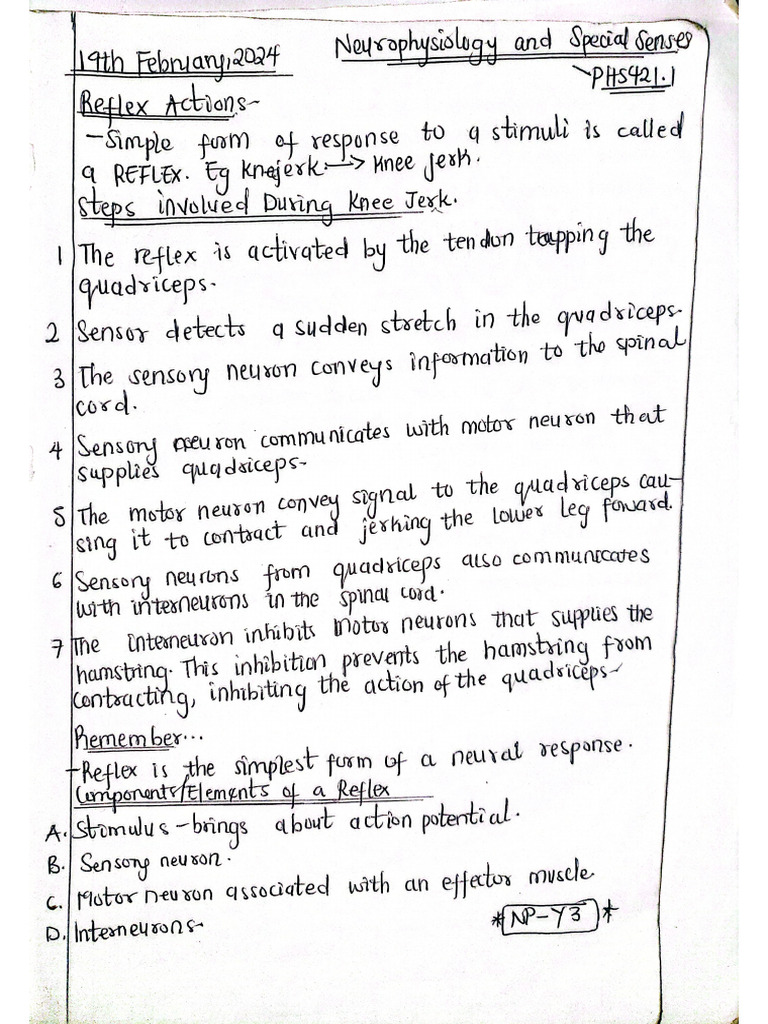 19th February, 2024
Neurophysiology and Special Senses
PHS421.1
Reflex Actions-
-Simple form of response to a stimuli is called
a REFLEX. Eg Kneejerk → Knee jerk.
Steps involved During Knee Jerk.
1 The reflex is activated by the tendon tapping the
quadriceps.
2 Sensor detects a sudden stretch in the quadriceps.
3 The sensory neuron conveys information to the spinal
cord.
4 Sensory neuron communicates with motor neuron that
supplies quadriceps-
5 The motor neuron convey signal to the quadriceps cau-
sing it to contract and jerking the lower leg foward.
6 Sensory neurons from quadriceps also communicates
with interneurons in the spinal cord.
7 The interneuron inhibits motor neurons that supplies the
hamstring. This inhibition prevents the hamstring from
contracting, inhibiting the action of the quadriceps-
Remember...
-Reflex is the simplest form of a neural response.
Components/Elements of a Reflex
A. Stimulus-brings about action potential.
B. Sensory neuron.
C. Motor neuron associated with an effector muscle
D. Interneurons-
*NP-Y3*